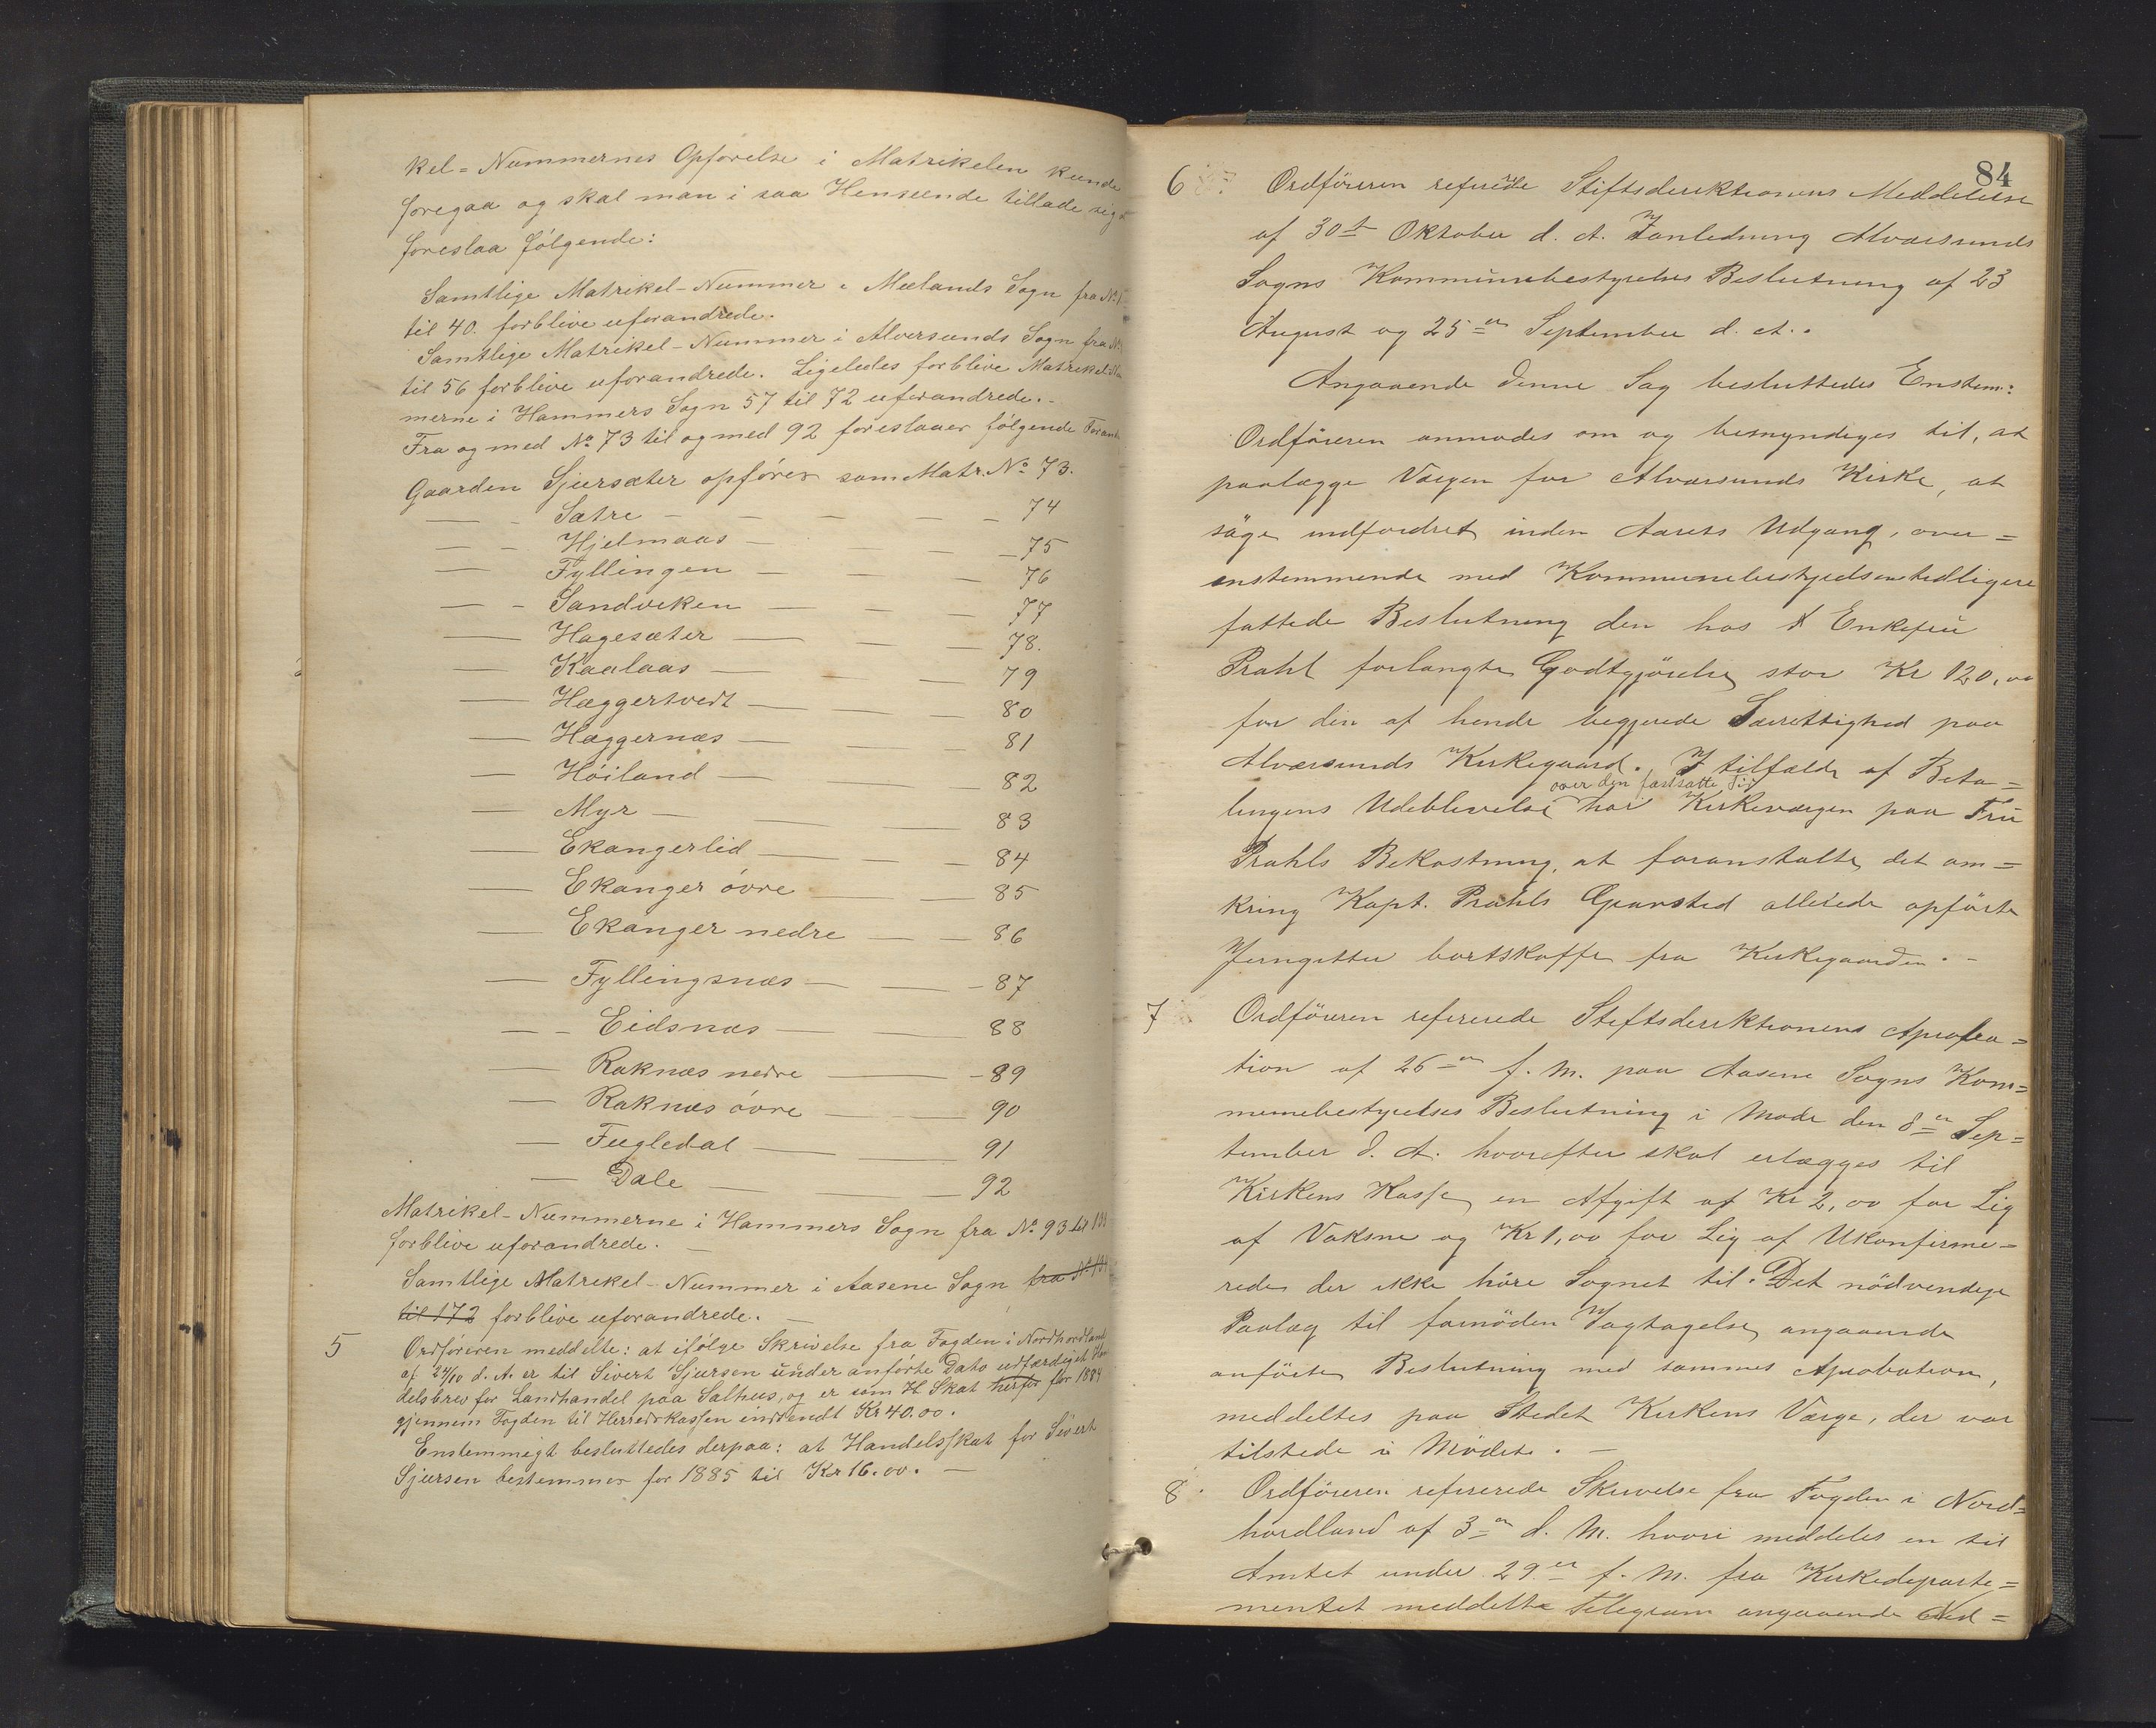 kel=Nummernes Opförelse i Matrikelen kunde
foregaa og skal man i saa Henseende tillade sig
foreslaa fölgende:
Samtlige Matrikel-Nummer i Mælands Sogn fra No 1
til 40. forblive uforandrede.
Samtlige Matrikel-Nummer i Alversunds Sogn fra
til 56 forblive uforandrede. Ligeledes forblive Matrikel
merne i Hammers Sogn 57 til 72 uforandrede.-
Fra og med No 73 til og med 92 foreslaaes fölgende
Gaarden Sjursæter opföres som Matr. No 73.
— - Sætre - — — — — 74
— - Hjelmaas — — — — 75
— Fyllingen — — — 76
— - Sandviken — — — 77
— Hagesæter — — — 78.
— Kaalaas — — — 79
— Hæggertvedt — — — 80
— Hæggernæs — — — 81
— Höiland — — — 82
— Myr — — — 83
— Ekangerlid — — — 84
— Ekanger övre — — 85
— Ekanger nedre — — 86
— Fyllingsnæs — — - 87
— - Eidsnæs — — 88
— Raknæs nedre — - 89
— Raknæs övre — — 90
— Fugledal — — 91
— Dale — — 92
Matrikel-Nummerne i Hammers Sogn fra No 93 til
forblive uforandrede. —
Samtlige Matrikel-Nummer i Aasene Sogn fra No
til 172 forblive uforandrede. —
5 Ordföreren meddelte: at ifölge Skrivelse fra Fogden i Nordhordland
af 24/10 d. A. er til Sivert Sjursen under anförte Dato udfærdiget Han
delsbrev for Landhandel paa Salhus, og er som H. Skat herfor for 1884
gjennem Fogden til Herredskassen indsendt Kr 40.00.
Enstemmigt besluttedes derpaa: at Handelsskat for Sivert
Sjursen bestemmes for 1885 til Kr 16.00. —
84
6 Ordföreren refererede Stiftsdirektionens Meddelelse
af 30te Oktober d. A. I anledning Alversunds
Sogns Kommunebestyrelses Beslutning af 23
August og 25de September d. A..
Angaaende denne Sag besluttedes Enstem:
Ordföreren anmodes om og bemyndiges til, at
paalægge Værgen for Alversunds Kirke, at
söge indfordret inden Aarets Udgang, over=
enstemmende med Kommunebestyrelsens tidligere
fattede Beslutning den hos Enkefru
Prahl forlangte Godtgjörelse stor Kr 120,00
for den af hende begjerede Særrettighed paa
Alversunds Kirkegaard. I tilfælde af Beta=
over den fastsatte Tid
lingens Udeblivelse har Kirkeværgen paa Fru
Prahls Bekostning, at foranstalte det om=
kring Kapt. Prahls Gravsted allerede opförte
Jerngitter bortskaffe fra Kirkegaarden. -
7 Ordföreren refererede Stiftsdirektionens Aproba=
tion af 26de f. M. paa Aasene Sogns Kom=
munebestyrelses Beslutning i Mode den 8de Sep=
tember d. A. hvorefter skal erlægges til
Kirkens Kasse en Afgift af Kr 2,00 for Lig
af Voksne og Kr 1,00 for Lig af Ukonfirme=
rede der ikke höre Sognet til. Det nödvendige
Paalæg til fornöden Iagtagelse angaaende
anförte Beslutning med sammes Aprobation,
meddeltes paa Stedet Kirkens Værge, der var
tilstede i Mödet. —
8 Ordföreren refererede Skrivelse fra Fogden i Nord=
hordland af 3de d. M. hvori meddeles en til
Amtet under 29de f. M. fra Kirkedeparte=
mentet meddelte Telegram angaaende